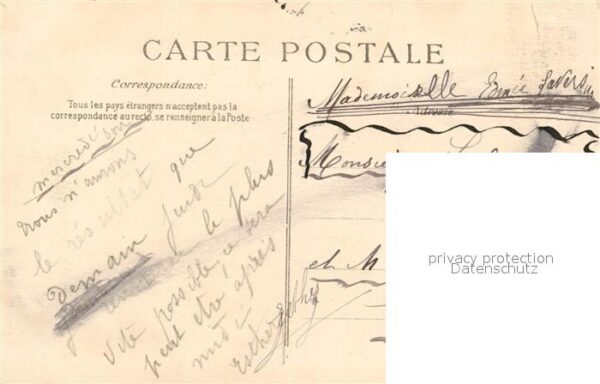 CARTE POSTALE
Correspondance:
Tous les pays étrangers n'acceptent pas la
correspondance au recto, se renseigner à la Poste
Adresse
Mademoiselle
Monsieur
et M
mercredi soir
nous n'aurons
le résultat que
Demain jeudi
le plus
vite possible, ce sera
peut être après
midi
privacy protection
Datenschutz